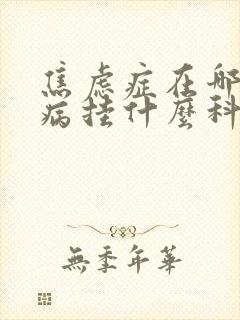 焦虑症在哪
病挂什麼科
無季年華